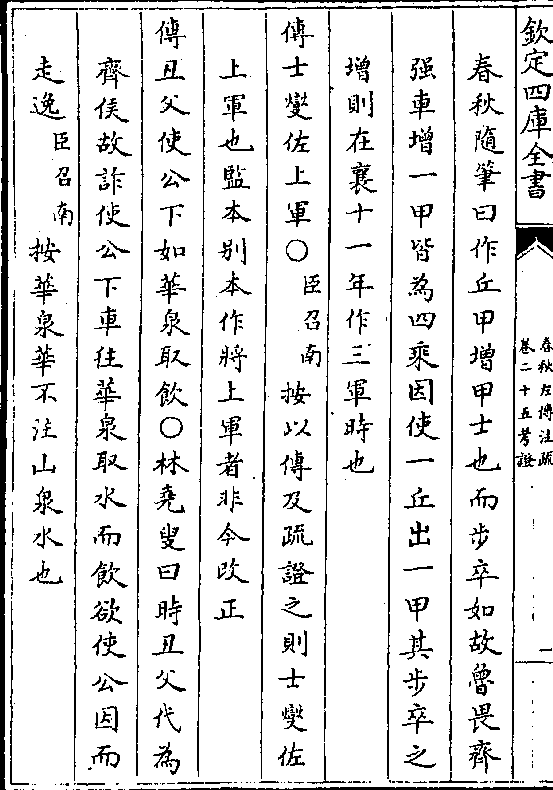 欽定四庫全書
春秋左傳注疏
卷二十五考證
一
春秋隨筆曰作丘甲增甲士也而步卒如故魯畏齊
强車增一甲皆為四乘因使一丘出一甲其步卒之
增則在襄十一年作三軍時也
傳士燮佐上軍〇臣召南按以傳及疏證之則士燮佐
上軍也監本别本作將上軍者非今改正
傳丑父使公下如華泉取飲〇林堯叟曰時丑父代為
齊侯故詐使公下車往華泉取水而飲欲使公因而
走逸臣召南按華泉華不注山泉水也